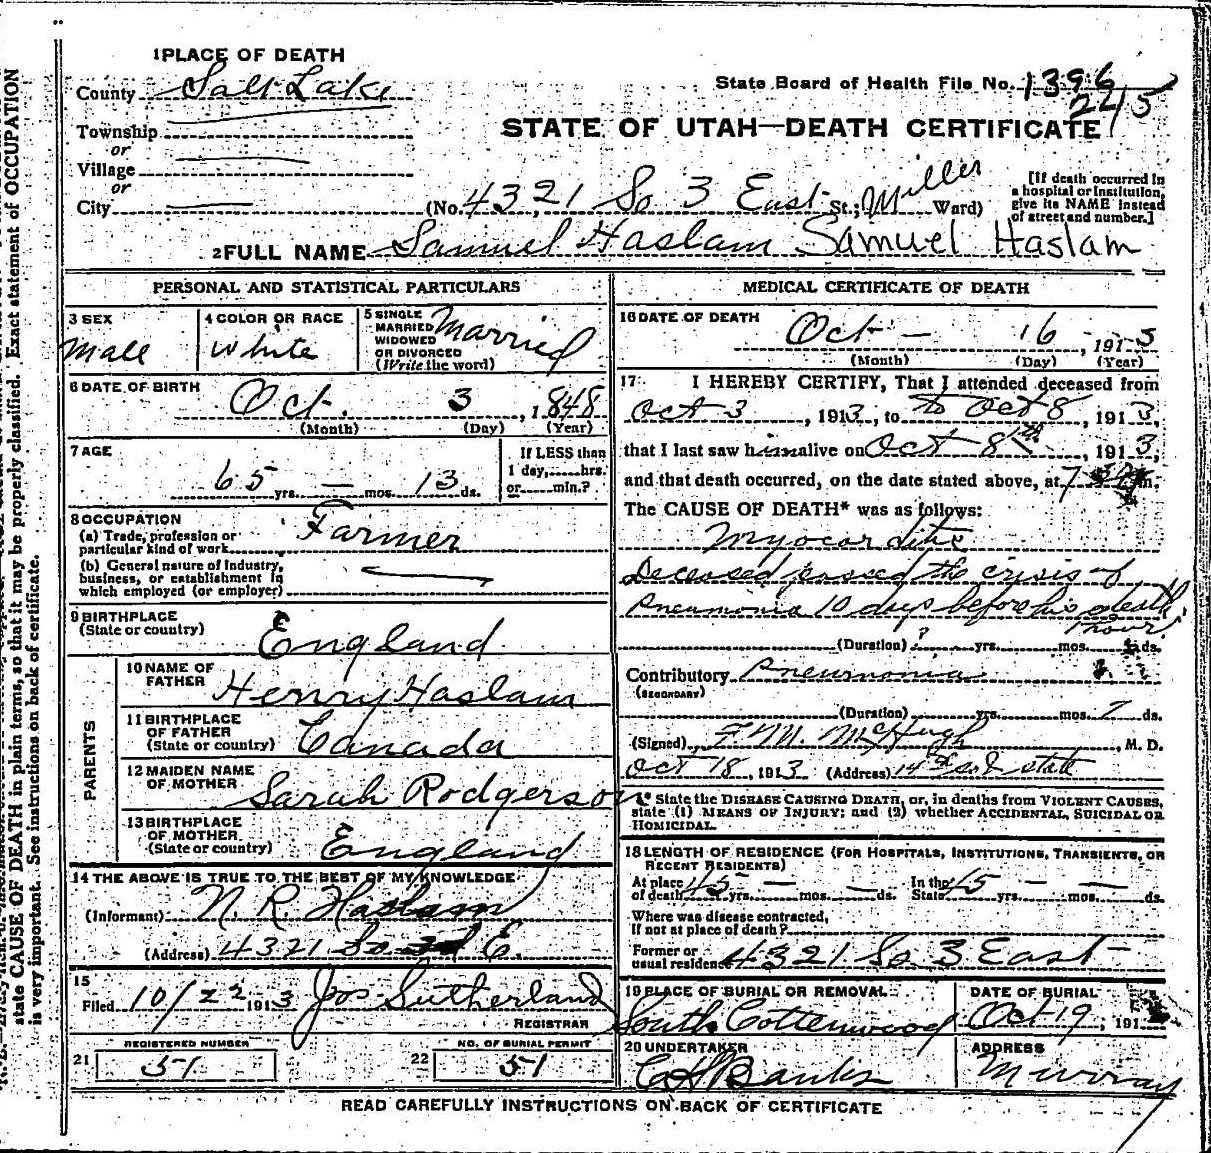 1 PLACE OF DEATH
County Salt Lake
State Board of Health File No. 1396
245
Township
or
Village
or
City
STATE OF UTAH—DEATH CERTIFICATE
(No. 4321 So 3 East St.; Miller Ward)
[If death occurred in
a hospital or institution,
give its NAME instead
of street and number.]
2 FULL NAME Samuel Haslam Samuel Haslam
PERSONAL AND STATISTICAL PARTICULARS
3 SEX
Male
4 COLOR OR RACE
White
5 SINGLE
MARRIED
WIDOWED
OR DIVORCED
(Write the word)
Married
6 DATE OF BIRTH
Oct. 3, 1848
(Month) (Day) (Year)
7 AGE
65 yrs. — mos. 13 ds.
If LESS than
1 day, hrs.
or min.?
8 OCCUPATION
(a) Trade, profession or
particular kind of work
Farmer
(b) General nature of industry,
business, or establishment in
which employed (or employer)
9 BIRTHPLACE
(State or country)
England
PARENTS
10 NAME OF
FATHER
Henry Haslam
11 BIRTHPLACE
OF FATHER
(State or country)
Canada
12 MAIDEN NAME
OF MOTHER
Sarah Rodgerson
13 BIRTHPLACE
OF MOTHER
(State or country)
England
14 THE ABOVE IS TRUE TO THE BEST OF MY KNOWLEDGE
(Informant) N. R. Haslam
(Address) 4321 So. 3d E.
15
Filed 10/22 1913 Jos Sutherland
REGISTRAR
REGISTERED NUMBER
21 51
NO. OF BURIAL PERMIT
22 51
MEDICAL CERTIFICATE OF DEATH
16 DATE OF DEATH
Oct — 16, 1913
(Month) (Day) (Year)
17 I HEREBY CERTIFY, That I attended deceased from
Oct 3, 1913, to to Oct 8, 1913,
that I last saw him alive on Oct 8th, 1913,
and that death occurred, on the date stated above, at 7 m.
The CAUSE OF DEATH* was as follows:
Myocarditis
Deceased passed the crisis of
Pneumonia 10 days before his death
1 hour
(Duration) ? yrs. mos. ds.
Contributory Pneumonia
(SECONDARY)
(Duration) yrs. mos. 7 ds.
(Signed) F. M. McHugh, M. D.
Oct 18, 1913 (Address) 14th so & state
* State the DISEASE CAUSING DEATH, or, in deaths from VIOLENT CAUSES,
state (1) MEANS OF INJURY; and (2) whether ACCIDENTAL, SUICIDAL OR
HOMICIDAL.
18 LENGTH OF RESIDENCE (FOR HOSPITALS, INSTITUTIONS, TRANSIENTS, OR
RECENT RESIDENTS)
At place
of death 45 yrs. — mos. — ds.
In the
State 45 yrs. — mos. — ds.
Where was disease contracted,
If not at place of death?
Former or
usual residence 4321 So 3 East
19 PLACE OF BURIAL OR REMOVAL
South Cottenwood
DATE OF BURIAL
Oct 19, 191
20 UNDERTAKER
Banks
ADDRESS
Murray
READ CAREFULLY INSTRUCTIONS ON BACK OF CERTIFICATE
state CAUSE OF DEATH in plain terms, so that it may be properly classified. Exact statement of OCCUPATION
is very important. See instructions on back of certificate.